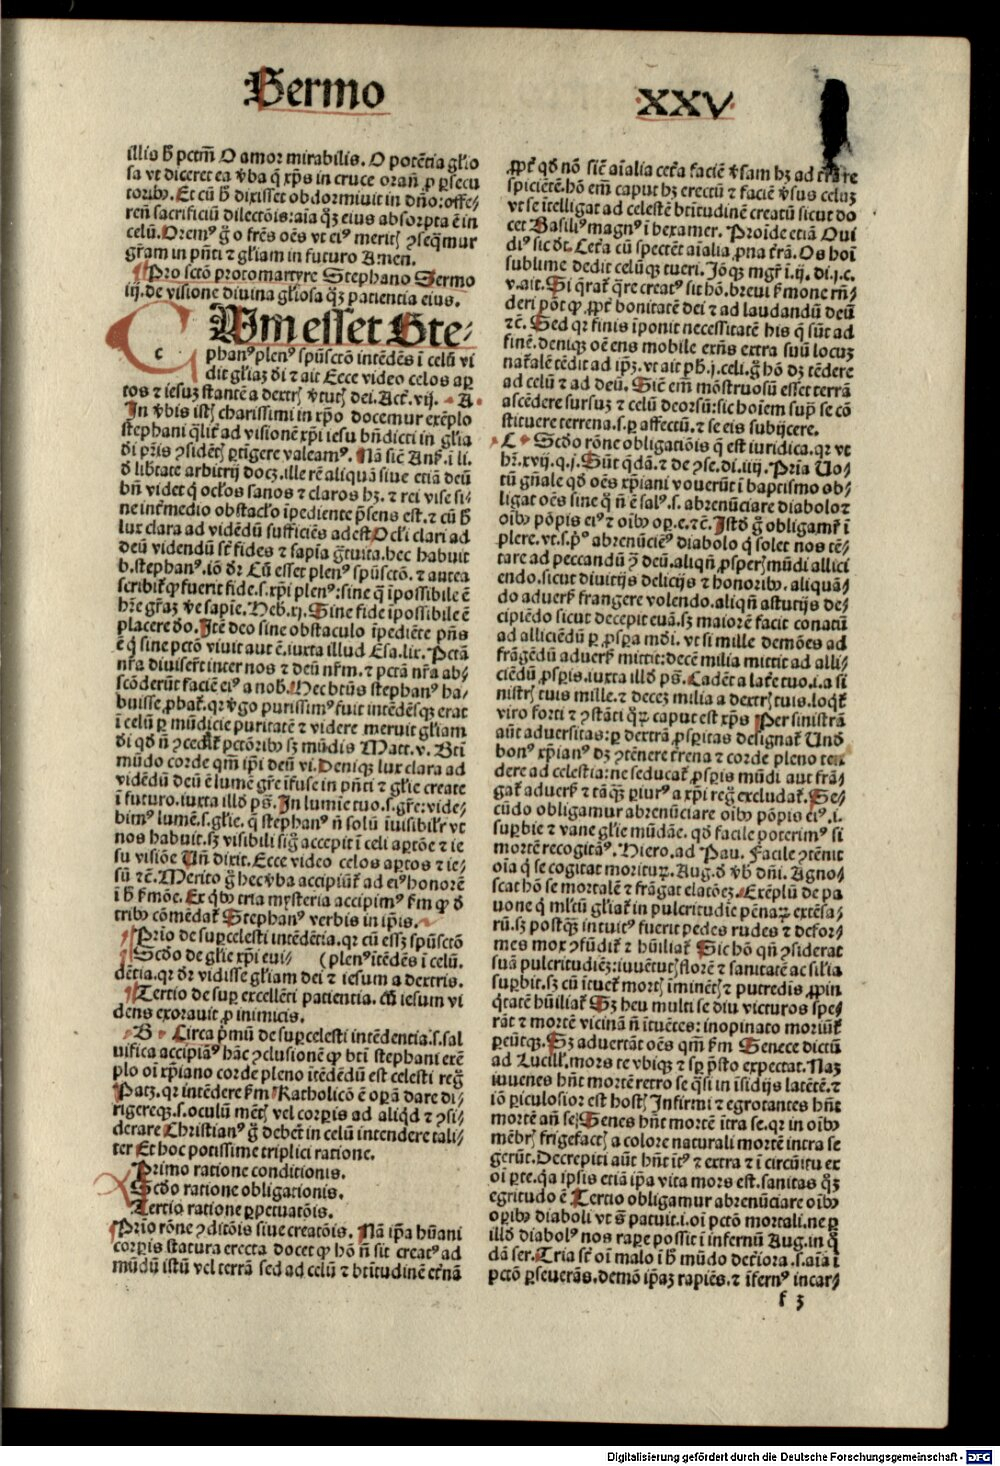 Sermo
XXV
illis h̄ pctm̄ O amor mirabilis. O potētia gl̄io
sa vt diceret ea v̄ba q̄ xp̄s in cruce oran̄ ꝓ ꝑsecu
toribꝰ. Et cū h̄ dixisset obdormiuit in dn̄o: offe⸗
ren̄ sacrificiū dilectōis: aīa qꝫ eius absorpta ē in
celū. Oremꝰ g̊ o frēs oēs vt eiꝰ merit ꝯseq̄mur
gr̄am in pn̄ti ⁊ gl̄iam in futuro Amen.
Pro sctō protomartyre Stephano Sermo
iij. de visione diuina gl̄iosa qꝫ patientia eius.
CUm esset Ste⸗
c
phanꝰ plenꝰ spūsctō intēdēs ī celū vi
dit gl̄iaꝫ d̄i ⁊ ait Ecce video celos aꝑ
tos ⁊ iesuꝫ stantē a dextr̄ v̄tut̄ dei. Act̄. vij. A
In v̄bis ist̄ charissimi in xp̄o docemur exēplo
stephani q̄lit̄ ad visionē xp̄i iesu bn̄dicti in gl̄ia
d̄i pr̄is ꝯsidēt̄ ꝑtigere valeamꝰ. Nā sic̄ Anẜ. ī li.
d̄ lib̄tate arbitrij docꝫ. ille rē aliquā siue etiā deū
bn̄ videt q̇ oclōs sanos ⁊ claros hꝫ. ⁊ rei vise si⸗
ne int̄medio obstacl̄o īpediente p̄sens est. ⁊ cū h̄
lux clara ad vidēdū sufficiēs adest Ocl̄i clari ad
deū videndū st̄ fides ⁊ sapīa gr̄tuita. hec habuit
b. stephanꝰ. iō d̄r Cū esset plenꝰ spūsctō. ⁊ antea
scribit̄ ꝙ fuerit fide. s. xp̄i plenꝰ: sine q̄ īpossibile ē
hr̄e gr̄aꝫ v̄e sapīe. Heb. xj. Sine fide īpossibile ē
placere d̄o. Itē deo sine obstaculo īpediēte pn̄s
ē q̇ sine pctō viuit aut ē. iuxta illud Esa. lix. Pctā
nr̄a diuiserūt inter nos ⁊ deū nr̄m. ⁊ pctā nr̄a ab⸗
scōderūt faciē eiꝰ a nob. Hec btūs stephanꝰ ha⸗
buisse ꝓbat̄. qꝛ v̄go purissimꝰ fuit intēdēsqꝫ erat
ī celū ꝑ mūdicie puritatē ⁊ videre meruit gl̄iam
d̄i qd̄ n̄ ꝯcedit̄ pctōribꝰ sꝫ mūdis Matt. v. Btī
mūdo corde qm̄ ip̄i deū vi. Deniqꝫ lux clara ad
vidēdū deū ē lumē gr̄e īfuse in pn̄ti ⁊ gl̄ie create
ī futuro. iuxta illd̄ ps̄. In lumīe tuo. s. gr̄e: vide⸗
bimꝰ lumē. s. gl̄ie. q̄ stephanꝰ n̄ solū īuisibilr̄ vt
nos habuit. sꝫ visibili sig̊ accepit ī celi aꝑtōe ⁊ ie
su visiōe Un̄ dixit. Ecce video celos aꝑtos ⁊ ie⸗
sū ⁊c̄. Merito g̊ hec v̄ba accipiūt̄ ad eiꝰ honorē
ī h̄ ẜmōe. Ex qbꝰ tria mysteria accipimꝰ ẜm q̄ d̄
tribꝰ cōmēdat̄ Stephanꝰ verbis in ip̄is.
Prīo de suꝑcelesti intēdētia. qꝛ cū essꝫ spūsctō
Scd̄o de gl̄ie xp̄i eui⸗ (plenꝰ ītēdēs ī celū.
dētia. qꝛ d̄r vidisse gl̄iam dei ⁊ iesum a dextris.
Tertio de suꝑ excellēti patientia. cū iesum vi
dens exorauit ꝓ inimicis.
B Circa p̄mū de suꝑcelesti intēdentia. s. sal
uifica accipiāꝰ hāc ꝯclusionē ꝙ btī stephani exē
plo oī xp̄iano corde pleno ītēdēdū est celesti reg̊
Patꝫ. qꝛ intēdere ẜm Katholicō ē oꝑā dare di⸗
rigereqꝫ. s. oculū mēt̄ vel corꝑis ad aliqd̄ ⁊ ꝯsi⸗
derare Christianꝰ g̊ debet in celū intendere tali⸗
ter Et hoc potissime triplici ratione.
Primo ratione conditionis.
Scd̄o ratione obligationis.
Tertio ratione ꝑpetuatōis.
Prīo rōne ꝯditōis siue creatōis. Nā ip̄a hūani
corꝑis statura erecta docet ꝙ hō n̄ sit creatꝰ ad
mūdū istū vel terrā sed ad celū ⁊ btītudinē et̄nā
ꝓpt̄ qd̄ nō sic̄ aīalia cet̄a faciē v̄sam hꝫ ad t̄rā re
spiciētē. hō em̄ caput hꝫ erectū ⁊ faciē v̄sus celuꝫ
vt se ītelligat ad celestē btītudinē creatū sicut do
cet Basiliꝰ magnꝰ ī hexamer. Proīde etiā Oui
diꝰ sic d̄t. Cet̄a cū spectēt aīalia ꝓna t̄rā. Os hoī
sublime dedit celūqꝫ tueri. Jōqꝫ mgr̄ ī. ij. di. j. c.
v. ait. Si q̄rat̄ q̄re creatꝰ sit hō. breui ẜmone rn̄⸗
deri pōt ꝙ ꝓpt̄ bonitatē dei ⁊ ad laudandū deū
⁊c̄. Sed qꝛ finis īponit necessitatē his q̄ sūt ad
finē. deniqꝫ oē ens mobile exn̄s extra suū locuꝫ
nat̄alē tēdit ad ip̄ꝫ. vt ait ph̄. j. celi. g̊ hō dꝫ tēdere
ad celū ⁊ ad deū. Sic̄ em̄ mōstruosū esset terrā
ascēdere sursuꝫ ⁊ celū deorsū: sic hoīem suꝑ se cō
stituere terrena. s. ꝑ affectū. ⁊ se eis subijcere.
C Scd̄o rōne obligatiōis q̄ est iuridica. qꝛ vt
hr̄. xvij. q. j. Sūt q̄dā. ⁊ de ꝯse. di. iiij. Prīa Uo⸗
tū gn̄ale qd̄ oēs xp̄iani vouerūt ī baptismo ob⸗
ligat oēs sine q̄ n̄ ē salꝰ. s. abrenūciare diabolo ⁊
oībꝰ pōpis eiꝰ ⁊ oībꝰ oꝑ. e. ⁊c̄. Istd̄ g̊ obligamr̄ ī
plere. vt. s. pꝰ abrenūciēꝰ diabolo q̇ solet nos tē⸗
tare ad peccandū ꝯ deū. aliqn̄ ꝓsper̄ mūdi allici
endo. sicut diuitijs delicijs ⁊ honoribꝰ. aliquā⸗
do aduerẜ frangere volendo. aliqn̄ astutijs de⸗
cipiēdo sicut decepit euā. sꝫ maiorē facit conatū
ad alliciēdū ꝑ ꝓspera mūdi. vt si mille demōes ad
frāgēdū aduerẜ mittit: decē milia mittit ad alli⸗
ciēdū ꝓsꝑis. iuxta illd̄ ps̄. Cadēt a lat̄e tuo. i. a si
nistr̄ tuis mille. ⁊ deceꝫ milia a dextr̄ tuis. loqt̄
viro forti ⁊ ꝯstāti qꝝ caput est xp̄s Per sinistrā
aūt aduersitas: ꝑ dextrā ꝓsꝑitas designat̄ Und̄
bonꝰ xp̄ianꝰ dꝫ ꝯtēnere t̄rena ⁊ corde pleno ten
dere ad celestia: ne seducat̄ ꝓsꝑis mūdi aut frā⸗
gat̄ aduerẜ ⁊ tāqꝫ ꝑiurꝰ a xp̄i reg̊ excludat̄. Se⸗
cūdo obligamur abrenūciare oībꝰ pōpis eiꝰ. i.
suꝑbie ⁊ vane gl̄ie mūdāe. qd̄ facile poterimꝰ si
mortē recogitāꝰ. Hiero. ad Pau. Facile ꝯtēnit
oīa q̇ se cogitat moriturꝝ. Aug. d̄ v̄b dn̄i. Agno⸗
scat hō se mortalē ⁊ frāgat elatōeꝫ. Exēplū de pa
uone q̇ ml̄tū gl̄iat̄ in pulcritudīe pēnaꝝ extēsa⸗
rū. sꝫ postqꝫ intuitꝰ fuerit pedes rudes ⁊ defor⸗
mes mox ꝯfūdit̄ ⁊ hūiliat̄ Sic hō qn̄ ꝯsiderat
suā pulcritudiēꝫ: iuuētut̄ florē ⁊ sanitatē ac sil̄ia
suꝑbit. sꝫ cū ītuet̄ mort̄ īminēt̄ ⁊ putredis ꝓpin
q̄tatē hūiliat̄ Sꝫ heu multi se diu victuros spe⸗
rāt ⁊ mortē vicinā n̄ ītuētes: inopinato moriūt̄
ꝑeūtqꝫ. Sꝫ aduertāt oēs qm̄ ẜm Senece dictū
ad Lucill̄. mors te vbiqꝫ ⁊ sꝑ p̄sto expectat. Naꝫ
iuuenes hn̄t mortē retro se q̄si in īsidijs latētē. ⁊
iō ꝑiculosior est host̄ Infirmi ⁊ egrotantes hn̄t
mortē an̄ se: Senes hn̄t mortē ītra se. qꝛ in oībꝰ
mēbr̄ frigefact̄ a colore naturali mortē intra se
gerūt. Decrepiti aūt hn̄t īt̄ꝰ ⁊ extra ⁊ ī circūitu ex
oī ꝑte. qa ipsis etiā ip̄a vita mors est. sanitas qꝫ
egritudo ē Tertio obligamur abrenūciare oībꝰ
oꝑibꝰ diaboli vt s̄ patuit. i. oī pctō mortali. ne ꝑ
illd̄ diabolꝰ nos raꝑe possit ī infernū Aug. in q̄
dā ser. Tria st̄ oī malo ī h̄ mūdo det̄iora. s. aīa ī
pctō ꝑseuerās. demō ip̄aꝫ rapiēs. ⁊ īfernꝰ incar⸗
f 3
Digitalisierung gefördert durch die Deutsche Forschungsgemeinschaft - DFG